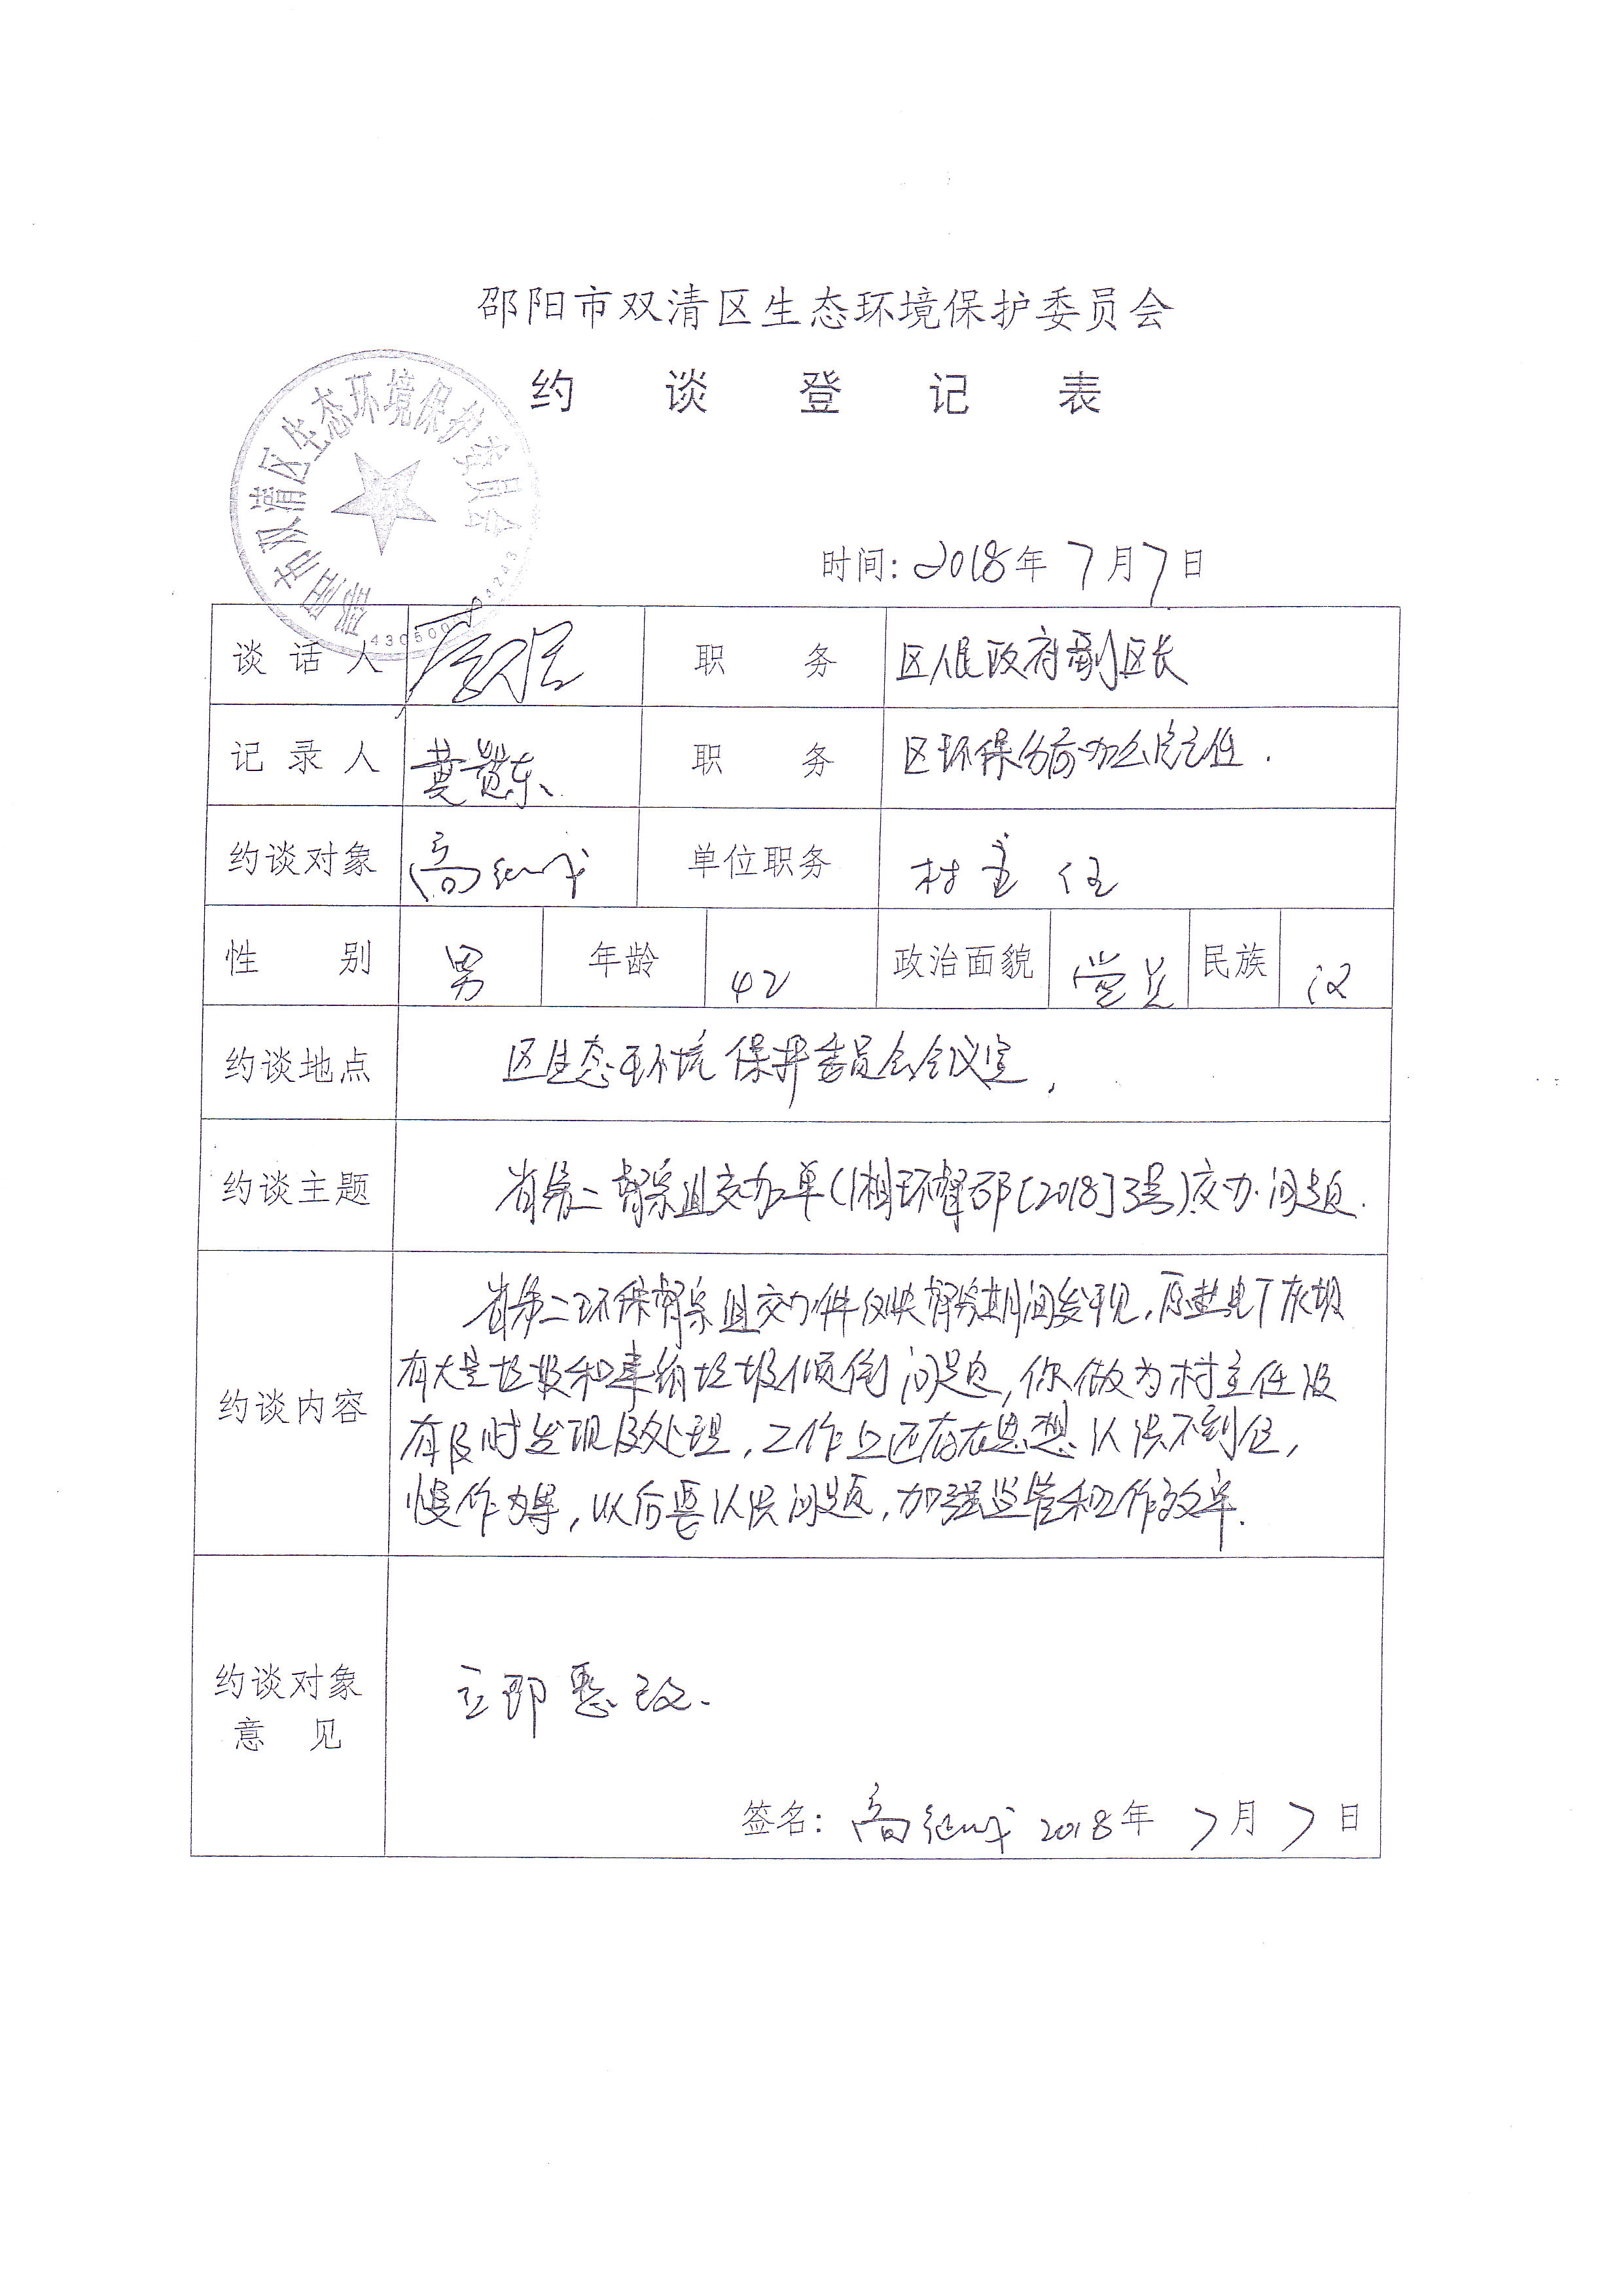 邵阳市双清区生态环境保护委员会
约谈登记表
邵阳市双清区生态环境保护委员会
时间：2018年7月7日
谈话人 职务 区人民政府副区长
记录人 黄贵东 职务 区环保分局办公室主任.
约谈对象 高 单位职务 村主任
性别 男 年龄 42 政治面貌 党员 民族 汉
约谈地点 区生态环境保护委员会会议室.
约谈主题 省第二督察组交办单(湘环督邵[2018]3号)交办问题.
约谈内容
省第二环保督察组交办件 督察期间发现,原 电厂灰坝
有大量垃圾和建筑垃圾倾倒问题,你做为村主任没
有及时发现及处理,工作上还存在思想认识不到位,
慢作为等,以后要认识问题,加强监管和工作效率.
约谈对象
意见
立即整改.
签名：高 2018年7月7日